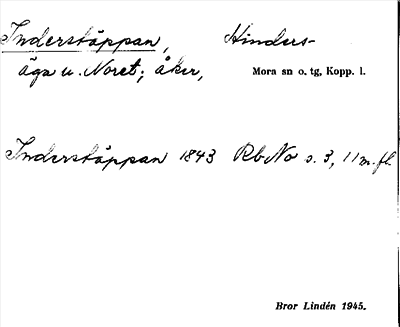 Inderstäppan, Hinders-
äga u. Noret; åker, Mora sn o. tg, Kopp. l.
Inderstäppan 1843 Rb No s. 3, 11 m. fl.
Bror Lindén 1945.